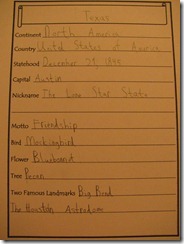 Texas
Continent North America
Country United States of America
Statehood December 29, 1845
Capital Austin
Nickname The Lone Star State
Motto Friendship
Bird Mockingbird
Flower Bluebonnet
Tree Pecan
Two Famous Landmarks Big Bend
The Houston Astrodome